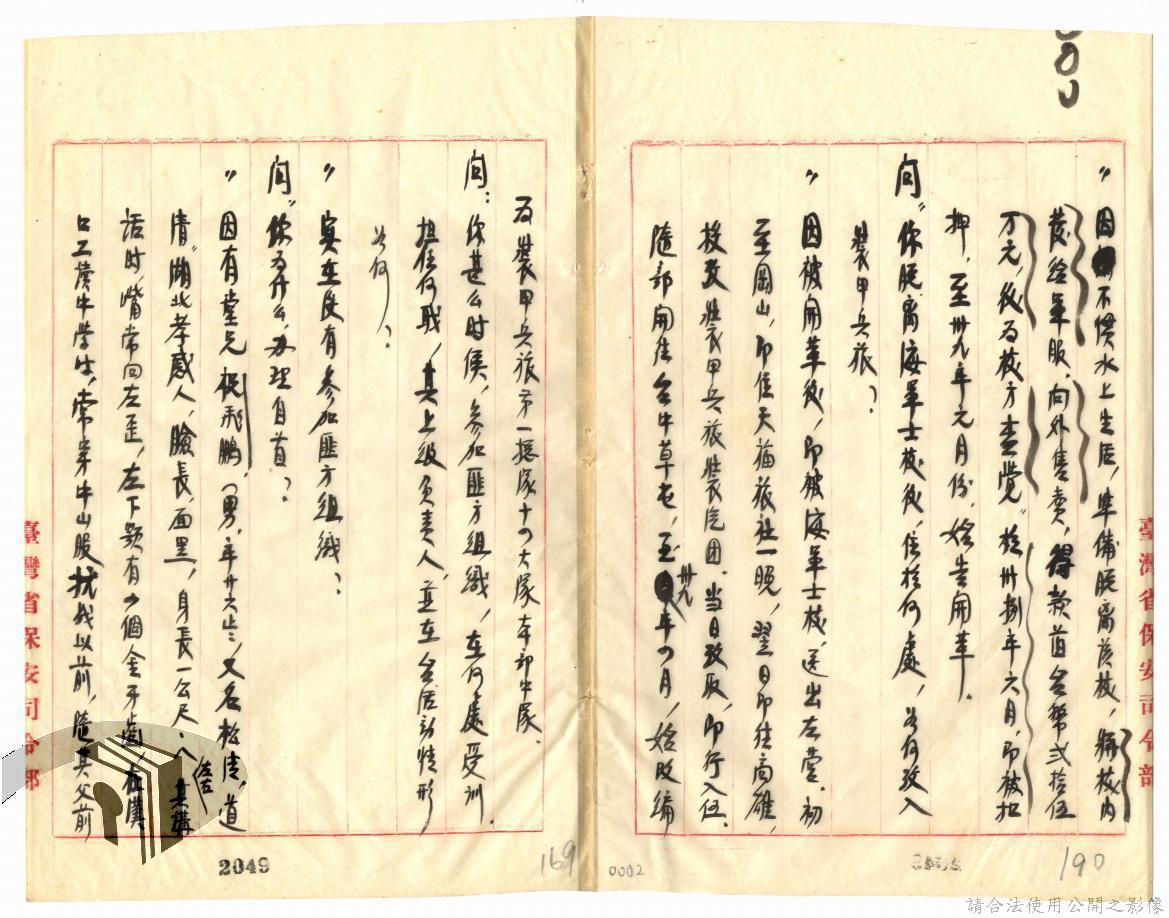 〃因不慣水上生活，準備脫离該校，將校内
發給軍服，向外售賣，得款舊台幣弍拾伍
万元，後为校方查觉，於卅捌年六月，即被扣
押，至卅九年元月份，始告開革．
問〃你脫离海軍士校後，住於何處，如何致入
裝甲兵旅？
〃因被開革後，即被海軍士校，送出左营，初
至岡山，即住天福旅社一晚，翌日即往高雄，
投致裝甲兵旅裝汽团．当日致取，即行入伍．
隨部開往台中草屯，至卅九年四月，始改編
为裝甲兵旅第一總隊十四大隊本部中隊．
问：你甚么时侯，參加匪方組織，在何處受訓．
担任何职，其上級负责人，並在台活动情形
如何？
〃實在没有參加匪方組織？
问〃你为什么，办理自首？
〃因有堂兄祝飛鵬，（男，年廿六岁，又名松清，道
清〃湖北孝感人，臉長，面黑，身長一公尺六左右其講
話时，嘴常向左歪，左下顎有少個金牙齒，在漢
口工讀中學生，常穿中山服，抗战以前，隨其父前
臺灣省保安司令部
臺灣省保安司令部
2049
169
0002
190
請合法使用公開之影像